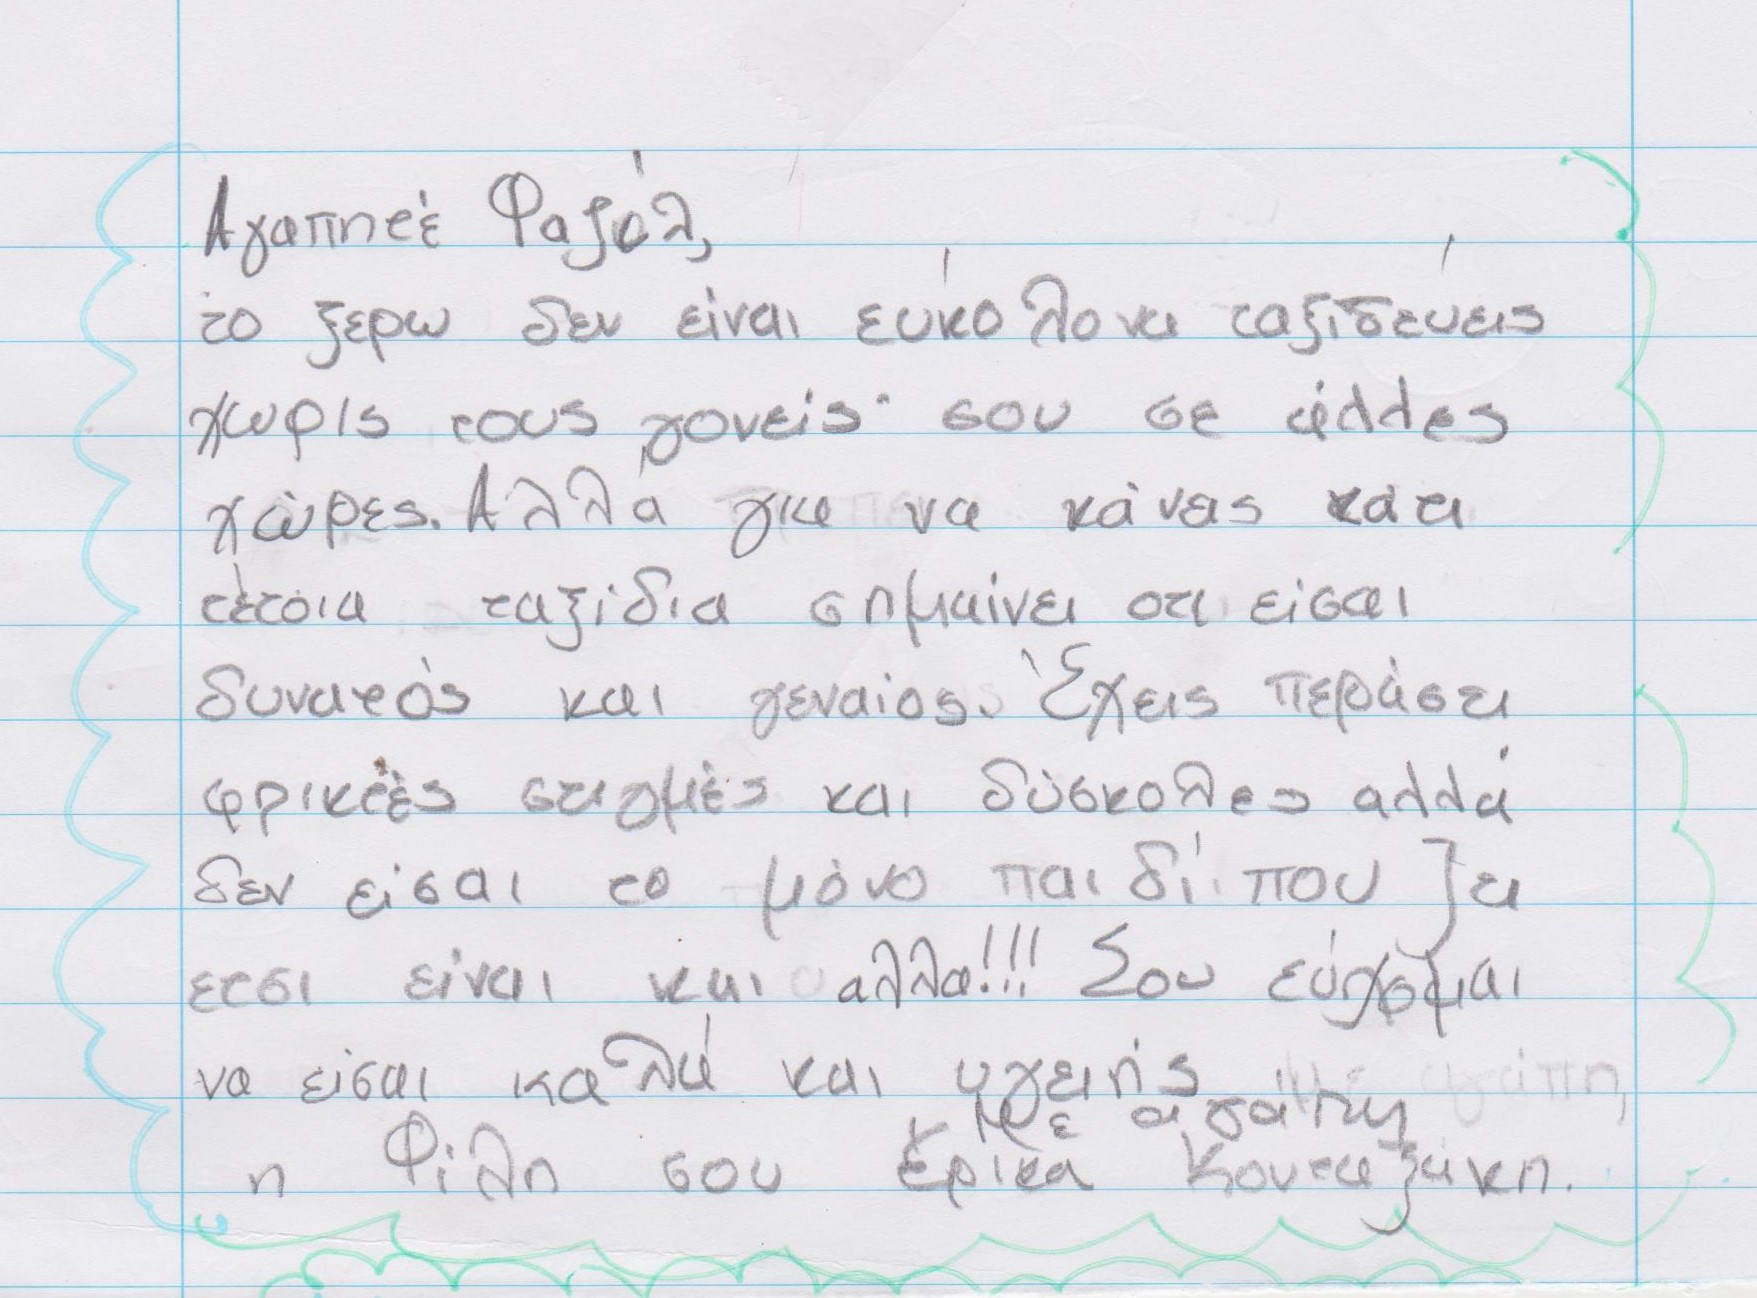 Αγαπητέ Φαζόλ,
το ξερω δεν είναι εύκολο να ταξιδεύεις
χωρις τους γονείς σου σε άλλες
χώρες. Αλλά για να κάνεις κατι
τέτοια ταξίδια σημαίνει οτι είσαι
δυνατός και γεναίος. Έχεις περάσει
φρικτές στιγμές και δύσκολες αλλά
δεν είσαι το μόνο παιδί που ζει
ετσι είναι και αλλα!!! Σου εύχομαι
να είσαι καλά και υγειής
Με αγάπη
η Φίλη σου Έρικα Κουταζάκη.